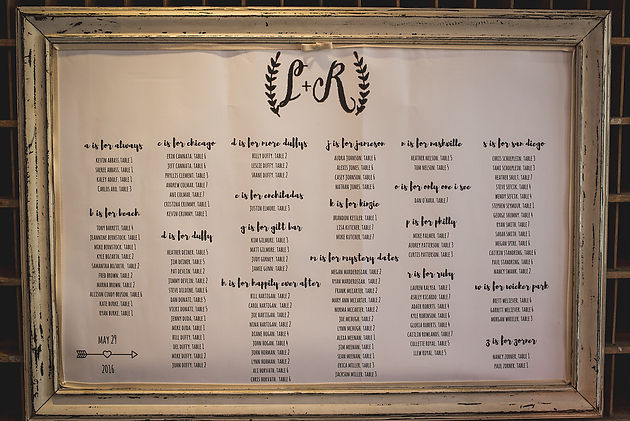 L + R
a is for always
KEVIN ABBASS, TABLE 1
SHERIE ABBASS, TABLE 1
KALEY ADOLF, TABLE 1
CARLOS ARD, TABLE 3
b is for beach
TONY BARRETT, TABLE 4
JEANNINE BERNSTOCK, TABLE 1
MIKE BERNSTOCK, TABLE 1
KYLE BOZARTH, TABLE 2
SAMANTHA BOZARTH, TABLE 2
FRED BROWN, TABLE 2
MARNA BROWN, TABLE 2
ALLISON CINDY BRYSON, TABLE 6
KATE BURKE, TABLE 1
RYAN BURKE, TABLE 1
MAY 29
2016
c is for chicago
ERIN CANNATA, TABLE 6
JEFF CANNATA, TABLE 6
PHYLLIS CLEMENT, TABLE 3
ANDREW COLMAR, TABLE 7
AVE COLMAR, TABLE 7
CRISTINA CRUMMY, TABLE 1
KEVIN CRUMMY, TABLE 1
d is for duffy
HEATHER DEINER, TABLE 3
JIM DEINER, TABLE 3
PAT DEVLIN, TABLE 2
JIMMY DEVLIN, TABLE 2
STEVE DILEONE, TABLE 1
DAN DONATO, TABLE 5
VICKI DONATO, TABLE 5
JENNY DUDA, TABLE 1
MIKE DUDA, TABLE 1
BILL DUFFY, TABLE 1
DEE DUFFY, TABLE 1
MIKE DUFFY, TABLE 2
JOHN DUFFY, TABLE 2
d is for more duffys
BILLY DUFFY, TABLE 2
LESLIE DUFFY, TABLE 2
SHANE DUFFY, TABLE 2
e is for enchiladas
JUSTIN ELMORE, TABLE 3
g is for gilt bar
KIM GILMORE, TABLE 3
MATT GILMORE, TABLE 3
JUDY GURNEY, TABLE 3
JAMIE GUNN, TABLE 2
h is for happily ever after
BILL HARTIGAN, TABLE 2
CAROL HARTIGAN, TABLE 2
JOE HARTIGAN, TABLE 4
NINA HARTIGAN, TABLE 4
DIANE HOGAN, TABLE 4
JOHN HORGAN, TABLE 2
JOHN NORMAN, TABLE 2
LYNN HORMAN, TABLE 2
ALI HORVATH, TABLE 6
CHRIS HORVATH, TABLE 6
j is for jameson
AUDRA JOHNSON, TABLE 6
ALEXIS JONES, TABLE 6
CASEY JOHNSON, TABLE 6
NATHAN JONES, TABLE 6
k is for kinzie
BRANDON KESSLER, TABLE 1
LISA KUTCHER, TABLE 7
MIKE KUTCHER, TABLE 7
m is for mystery dates
MEGAN MARDERROSIAN, TABLE 2
RYAN MARDERROSIAN, TABLE 2
FRANK MCCARTER, TABLE 2
MARY ANN MCCARTER, TABLE 2
NORMA MCCURDY, TABLE 1
JOE MCHUGH, TABLE 2
LYNN MCHUGH, TABLE 2
ALEXA MEENAN, TABLE 1
JIM MEENAN, TABLE 1
SEAN MEENAN, TABLE 1
ERICA MILLER, TABLE 3
JACKSON MILLER, TABLE 3
n is for nashville
HEATHER NELSON, TABLE 5
TOM NELSON, TABLE 5
o is for only one i see
DAN O'HARA, TABLE 7
p is for philly
MIKE PALMER, TABLE 7
AUDREY PATTERSON, TABLE 3
CURTIS PATTERSON, TABLE 3
r is for ruby
LAUREN BALYSA, TABLE 1
ASHLEY RICARDO, TABLE 7
ADAIR ROBERTS, TABLE 4
KYLE ROBINSON, TABLE 4
GLORIA ROBERTS, TABLE 4
CAITLIN ROWLAND, TABLE 7
COLLETTE ROYAL, TABLE 5
LLEW ROYAL, TABLE 5
s is for san diego
CHRIS SCHOEPLEIN, TABLE 3
TAMI SCHOEPLEIN, TABLE 3
HEATHER SAULT, TABLE 3
STEVE SEFCIK, TABLE 4
WENDY SEFCIK, TABLE 4
STEPHEN SEYMOUR, TABLE 1
GEORGE SHUMNY, TABLE 4
RYAN SMITH, TABLE 1
SARAH SMITH, TABLE 1
MEGAN SPIRE, TABLE 6
CAITRIN STANDRING, TABLE 5
PAUL STANDRING, TABLE 5
NANCY SWANK, TABLE 3
w is for wicker park
BRETT WELLEVER, TABLE 6
GARRETT WELLEVER, TABLE 6
MORGAN WHEELER, TABLE 3
z is for zorner
NANCY ZORNER, TABLE 1
PAUL ZORNER, TABLE 1